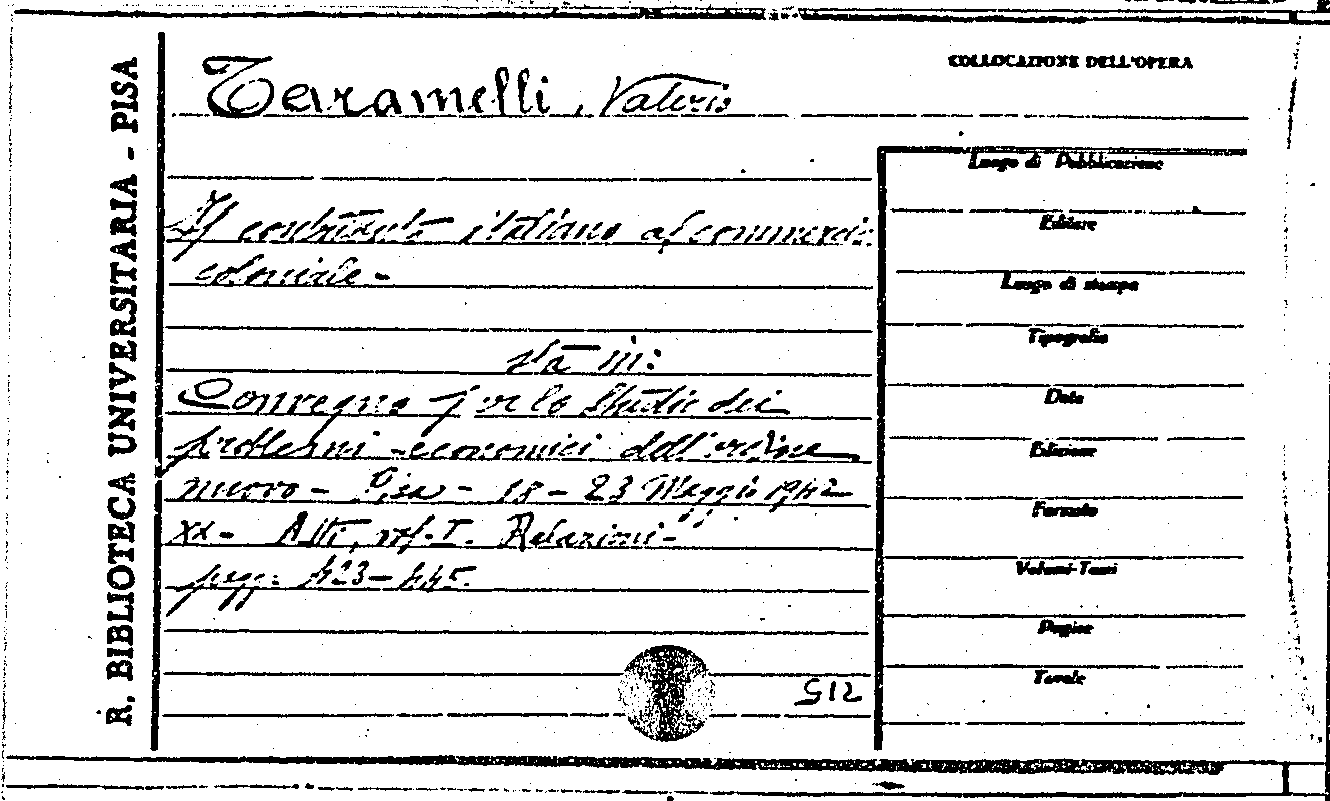 R. BIBLIOTECA UNIVERSITARIA - PISA
Taramelli, Valerio
COLLOCAZIONE DELL'OPERA
Il contributo italiano al commercio
coloniale -
sta in:
Convegno per lo Studio dei
problemi economici dell'ordine
nuovo - Pisa - 18 - 23 Maggio 1942
XX - Atti, vol. I. Relazioni -
pagg. 423 - 445.
512
Luogo di Pubblicazione
Editore
Luogo di stampa
Tipografia
Data
Edizione
Formato
Volumi-Tomi
Pagine
Tavole